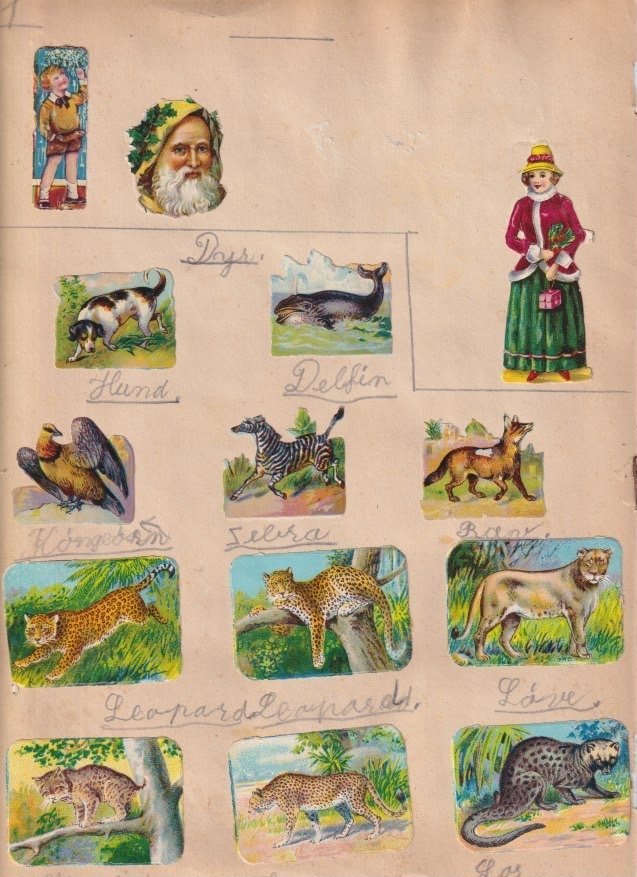 1
Dyr.
Hund.
Delfin
Kongeörn
Zebra
Räv.
Leopard Leopard.
Löve.
Los